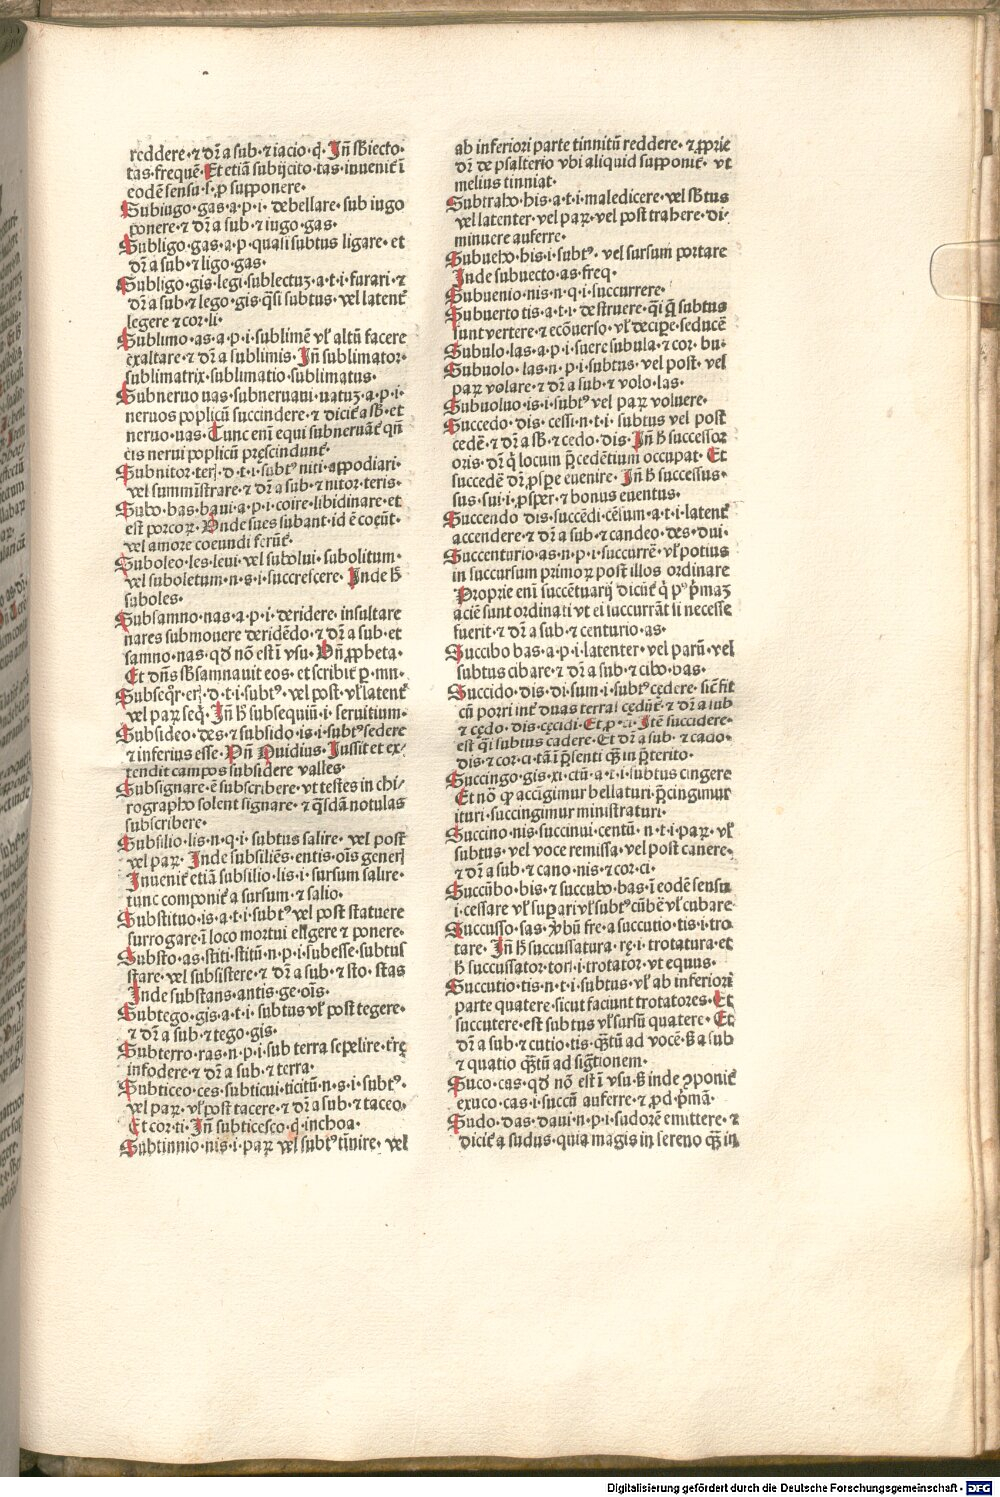 reddere·⁊ dr̄ a sub·⁊ iacio·q̇· Jn̄ sb̄iecto·
tas·frequē· Et etiā subijcito·tas·inuenit̄ ī
eodē sensu·s·ꝓ supponere·
Subiugo·gas·a·p·i·debellare·sub iugo
ponere·⁊ dr̄ a sub·⁊ iugo·gas·
Subligo·gas·a·p·quasi subtus ligare·et
dr̄ a sub·⁊ ligo·gas·
Subligo·gis·legi·sublectuꝫ·a·t·i·furari·⁊
dr̄ a sub·⁊ lego·gis·q̄si subtus·vel latent̄
legere ⁊ cor·li·
Sublimo·as·a·p·i·sublimē vl̄ altū facere
exaltare·⁊ dr̄ a sublimis· Jn̄ sublimator·
sublimatrix·sublimatio·sublimatus·
Subneruo uas·subneruaui·uatuꝫ·a·p·i·
neruos popliciū succindere·⁊ dicit̄ a sb̄·et
neruo·uas· Tunc eni equi subneruāt̄ qn̄
eis nerui popliciū pręscindunt̄·
Subnitor·terꝭ·d·t·i·subtꝰ niti·appodiari·
vel sumministrare·⁊ dr̄ a sub·⁊ nitor·teris·
Subo·bas·baui·a·p·i·coire·libidinare·et
est porcoꝝ· Vnde sues subant·id ē coeūt·
vel amore coeundi ferūt̄·
Suboleo·les·leui·vel subolui·subolitum·
vel suboletum·n·s·i·succrescere· Jnde h̄
suboles·
Subsamno·nas·a·p·i·deridere·insultare
nares submouere deridēdo·⁊ dr̄ a sub·et
samno·nas·qd̄ nō est ī vsu· Vn̄ ꝓpheta·
Et dn̄s sb̄samnauit eos·et scribit̄ ꝑ·mn·
Subseqr̄·erꝭ·d·t·i·subtꝰ·vel post·vl̄ latent̄
vel paꝝ seq̇· Jn̄ h̄ subsequiū·i·seruitium·
Subsideo·des·⁊ subsido·is·i·subtꝰ sedere
⁊ inferius esse· Vn̄ Ouidius· Jussit et ex/
tendit campos subsidere valles·
Subsignare·ē subscribere·vt testes in chi/
rographo solent signare·⁊ q̄sdā notulas
subscribere·
Subsilio·lis·n·q·i·subtus salire·vel post
vel paꝝ· Jnde subsiliēs·entis·oīs generꝭ
Jnuenit̄ etiā subsilio·lis·i·sursum salire·
tunc componit̄ a sursum·⁊ salio·
Substituo·is·a·t·i·subtꝰ vel post statuere
surrogare·ī loco mortui eligere ⁊ ponere·
Substo·as·stiti·stitū·n·p·i·subesse·subtus
stare·vel subsistere·⁊ dr̄ a sub·⁊ sto·stas
Jnde substans·antis·ge·oīs·
Subtego·gis·a·t·i·subtus vl̄ post tegere·
⁊ dr̄ a sub·⁊ tego·gis·
Subterro·ras·n·p·i·sub terra sepelire·t̄rę
infodere·⁊ dr̄ a sub·⁊ terra·
Subticeo·ces·subticui·ticitū·n·s·i·subtꝰ·
vel paꝝ·vl̄ post tacere·⁊ dr̄ a sub·⁊ taceo·
Et cor·ti· Jn̄ subticesco·q̇·inchoa·
Subtinnio·nis·i·paꝝ vel subtꝰ tinnire·vel
ab inferiori parte tinnitū reddere·⁊ ꝓprie
dr̄ de psalterio vbi aliquid supponit̄·vt
melius tinniat·
Subtraho·his·a·t·i·maledicere·vel sb̄tus
vel latenter·vel paꝝ·vel post trahere·di·
minuere auferre·
Subueho·his·i·subtꝰ·vel sursum portare
Jnde subuecto·as·freq·
Subuenio·nis·n·q·i·succurrere·
Subuerto tis·a·t·i·destruere·q̄i q̄ subtus
sunt vertere·⁊ ecōuerso·vl̄ deciꝑe·seducē
Subulo·las·a·p·i·suere subula·⁊ cor·bu·
Subuolo·las·n·p·i·subtus·vel post·vel
paꝝ volare·⁊ dr̄ a sub·⁊ volo·las·
Subuoluo·is·i·subtꝰ vel paꝝ voluere·
Succedo·dis·cessi·n·t·i·subtus vel post
cedē·⁊ dr̄ a sb̄·⁊ cedo·dis· Jn̄ h̄ successor
oris·dr̄ q̇ locum p̄cedētium occupat· Et
succedē dr̄·ꝓsꝑe euenire· Jn̄ h̄ successus·
sus·sui·i·ꝓsꝑ·⁊ bonus euentus·
Succendo dis·succēdi·cēsum·a·t·i·latent̄
accendere·⁊ dr̄ a sub·⁊ candeo·des·dui·
Succenturio·as·n·p·i·succurrē·vl̄ potius
in succursum primoꝝ post illos ordinare
Proprie eni succēturiꝭ dicūt̄ q̇ pꝰ p̄maꝫ
aciē sunt ordinati vt ei succurrāt si necesse
fuerit·⁊ dr̄ a sub·⁊ centurio·as·
Succibo bas·a·p·i·latenter·vel parū·vel
subtus cibare·⁊ dr̄ a sub·⁊ cibo·bas·
Succido·dis·di·sum·i·subtꝰ cędere·sic̄ fit
cū porri int̄ duas terras cędūt̄·⁊ dr̄ a sub
⁊ cędo·dis·cęcidi· Et ꝓ·ci· Jtē succidere·
est q̄i subtus cadere· Et dr̄ a sub·⁊ cado·
dis·⁊ cor·ci·tā ī p̄senti q̄ꝫ in p̄terito·
Succingo·gis·xi·ctū·a·t·i·subtus cingere
Et nō qꝫ accīgimur bellaturi·p̄cingimur
ituri·succingimur ministraturi·
Succino·nis·succinui·centū·n·t·i·paꝝ·vl̄
subtus·vel voce remissa·vel post canere·
⁊ dr̄ a sub·⁊ cano·nis·⁊ cor·ci·
Succūbo·bis·⁊ succubo·bas·ī eodē sensu
i·cessare vl̄ suꝑari vl̄ subtꝰ cūbē vl̄ cubare
Succusso·sas·v̄bū fre·a succutio·tis·i·tro
tare· Jn̄ h̄ succussatura·rę·i·trotatura·et
h̄ succussator·toris·i·trotator·vt equus·
Succutio·tis·n·t·i·subtus·vl̄ ab inferiori
parte quatere·sicut faciunt trotatores· Et
succutere·est subtus vl̄ sursū quatere· Et
dr̄ a sub·⁊ cutio·tis·q̄ꝫtū ad vocē·s̄ a sub
⁊ quatio q̄ꝫtū ad sig̅tionem·
Suco·cas·qd̄ nō est ī vsu·s̄ inde ꝯponit̄
exuco·cas·i·succū auferre·⁊ ꝓd·p̄mā·
Sudo·das·daui·n·p·i·sudorē emittere·⁊
dicit̄ a sudus·quia magis in sereno q̄ꝫ in
Digitalisierung gefördert durch die Deutsche Forschungsgemeinschaft - DFG